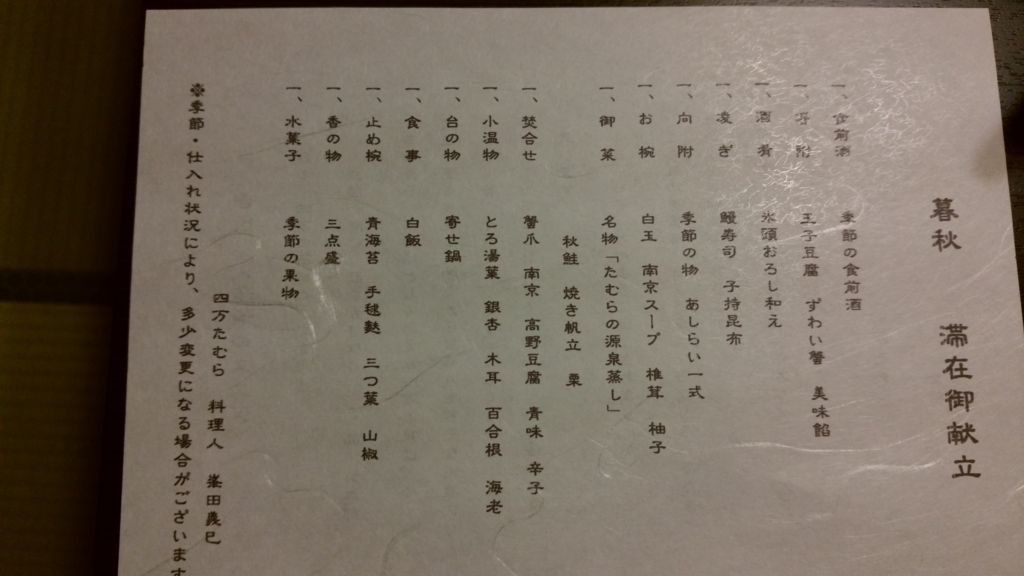 暮秋　滞在御献立
一、食前酒　季節の食前酒
一、先附　玉子豆腐　ずわい蟹　美味餡
一、酒肴　氷頭おろし和え
一、凌ぎ　鰻寿司　子持昆布
一、向附　季節の物　あしらい一式
一、お椀　白玉　南京スープ　椎茸　柚子
一、御菜　名物「たむらの源泉蒸し」
秋鮭　焼き帆立　栗
一、焚合せ　蟹爪　南京　高野豆腐　青味　辛子
一、小温物　とろ湯葉　銀杏　木耳　百合根　海老
一、台の物　寄せ鍋
一、食事　白飯
一、止め椀　青海苔　手毬麩　三つ葉　山椒
一、香の物　三点盛
一、水菓子　季節の果物
四万たむら　料理人　峯田義巳
※季節・仕入れ状況により、多少変更になる場合がございます